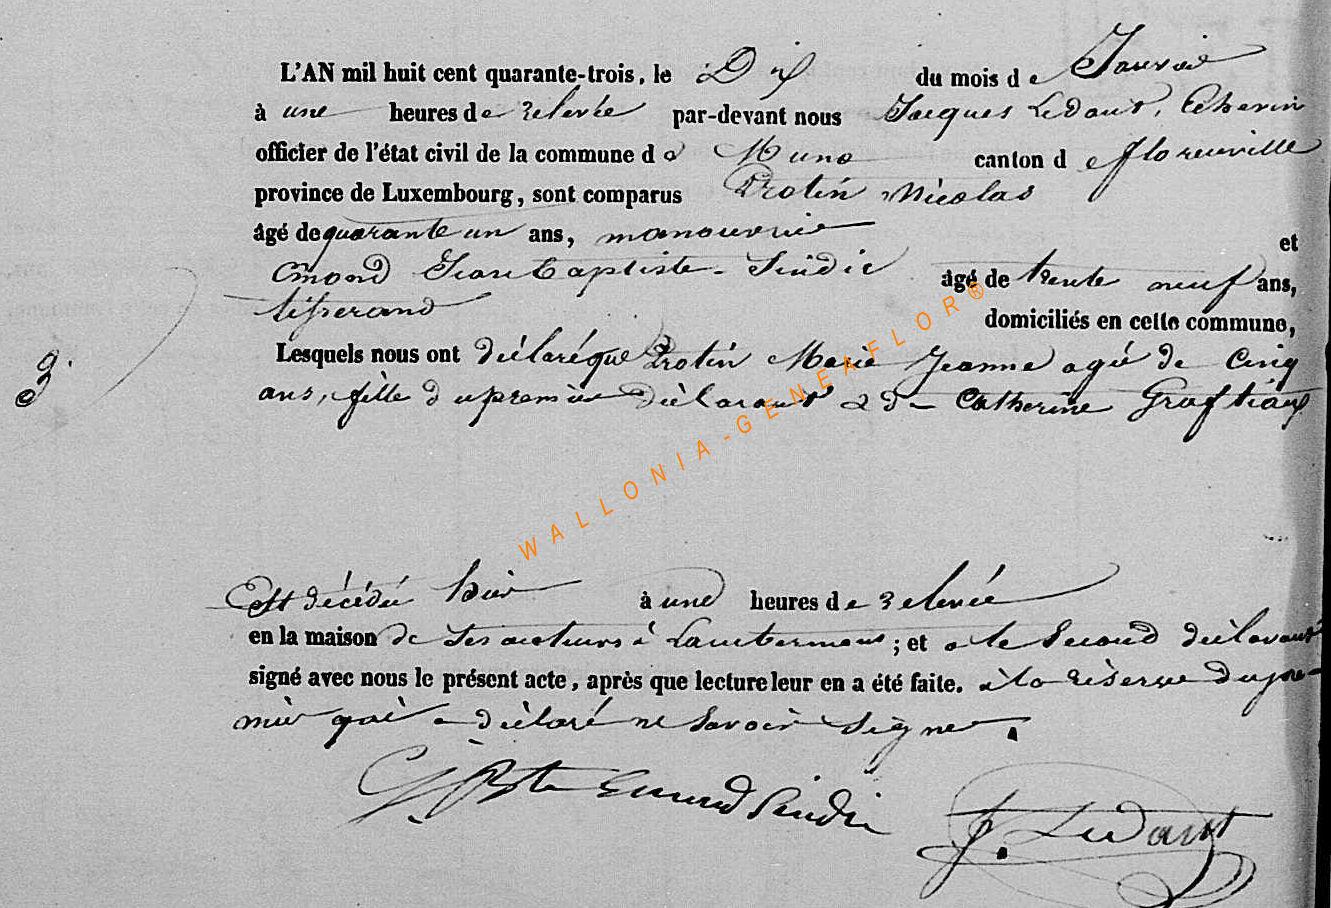 L'AN mil huit cent quarante-trois, le Dix du mois de Janvier
à une heures de relevée par-devant nous Jacques Ledant, Echevin
officier de l'état civil de la commune de Muno canton de florenville
province de Luxembourg, sont comparus Protin Nicolas
âgé de quarante un ans, manouvrier et
Emond Jean Baptiste Sindic âgé de trente neuf ans,
tisserand domiciliés en cette commune,
Lesquels nous ont déclaré que Protin Marie Jeanne agée de cinq
ans, fille du premier déclarant & de Catherine Graftiaux
3.
WALLONIA-GENEAFLOR®
Est décédée hier à une heures de relevée
en la maison de ses auteurs à Lambermont ; et a le second déclarant
signé avec nous le présent acte, après que lecture leur en a été faite. à la réserve du pre-
mier qui a déclaré ne savoir signer.
J. Bte Emond Sindic J. Ledant